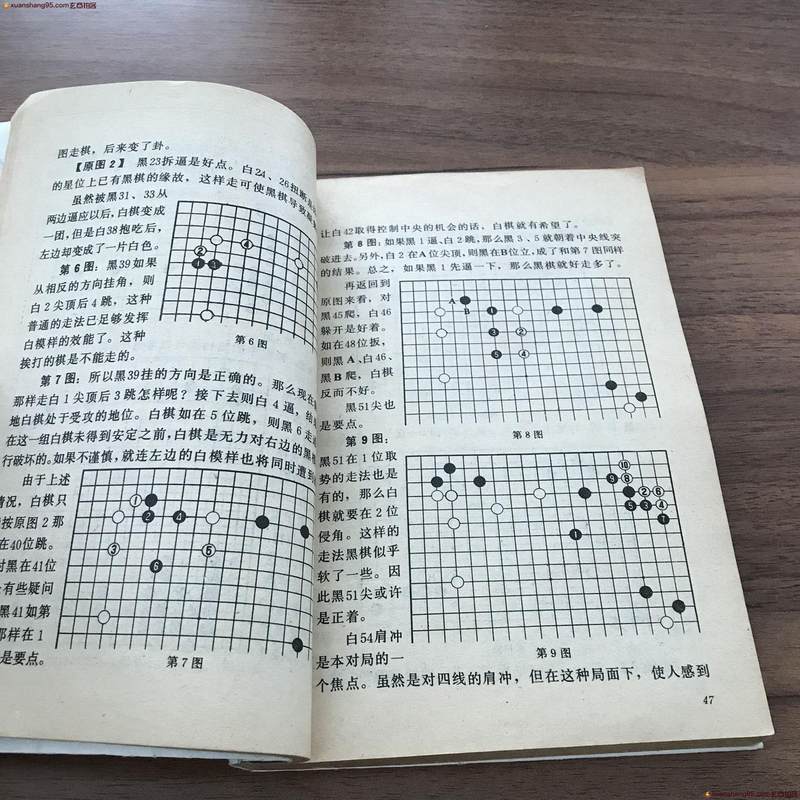 xuanshang95.com玄商拍网
图走棋，后来变了卦。
【原图2】 黑23拆逼是好点。白24、26扭断是
的星位上已有黑棋的缘故，这样走可使黑棋导致
虽然被黑31、33从
两边逼应以后，白棋变成
一团，但是白38抱吃后，
左边却变成了一片白色。
第6图：黑39如果
从相反的方向挂角，则
白2尖顶后4跳，这种
普通的走法已足够发挥
白模样的效能了。这种
挨打的棋是不能走的。
2
4
1
3
第6图
第7图：所以黑39挂的方向是正确的。那么现在
那样走白1尖顶后3跳怎样呢？接下去则白4逼，结
地白棋处于受攻的地位。白棋如在5位跳，则黑6走
在这一组白棋未得到安定之前，白棋是无力对右边的黑
行破坏的。如果不谨慎，就连左边的白模样也将同时遭到
由于上述
情况，白棋只
按原图2那
在40位跳。
对黑在41位
有些疑问
黑41如第
那样在1
是要点。
1
2
4
3
5
6
第7图
让白42取得控制中央的机会的话，白棋就有希望了。
第8图：如果黑1逼、白2跳，那么黑3、5就朝着中央线突
破进去。另外，白2在A位尖顶，则黑在B位立，成了和第7图同样
的结果。总之，如果黑1先逼一下，那么黑棋就好走多了。
再返回到
原图来看，对
黑45爬，白46
躲开是好着。
如在48位扳，
则黑A、白46、
黑B爬，白棋
反而不好。
黑51尖也
是要点。
A
B
3
2
5
4
第8图
第9图：
黑51在1位取
势的走法也是
有的，那么白
棋就要在2位
侵角。这样的
走法黑棋似乎
软了一些。因
此黑51尖或许
是正着。
10
9
8
2
6
5
3
4
7
1
第9图
白54肩冲
是本对局的一
个焦点。虽然是对四线的肩冲，但在这种局面下，使人感到
47
xuanshang95.com玄商拍网